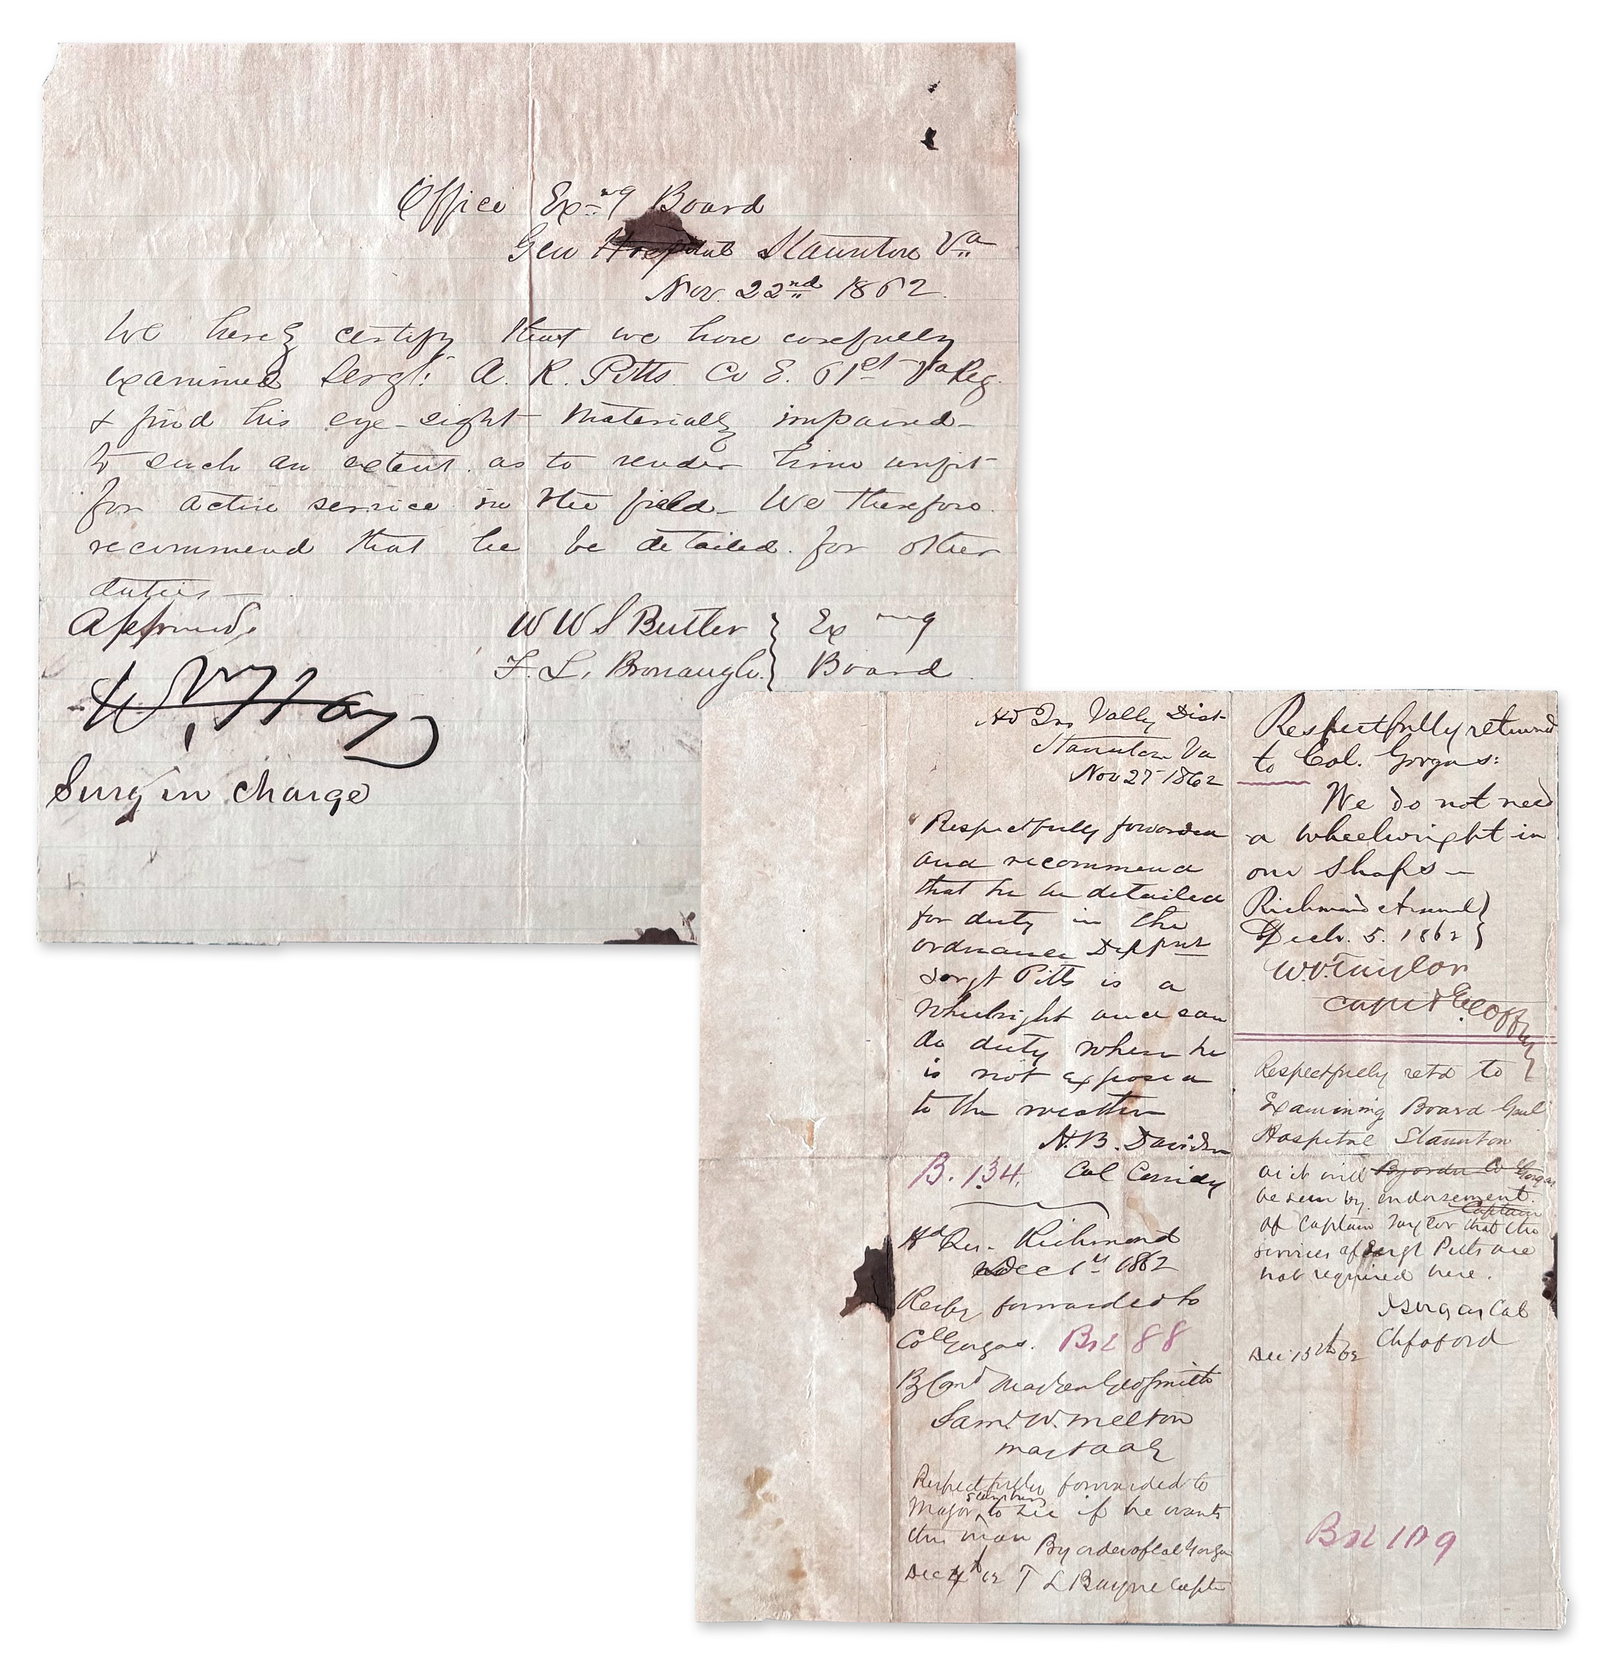 Office Exng Board
Gen Hospital Staunton Va
Nov. 22nd 1862.
We hereby certify that we have carefully
examined Sergt. A. R. Pitts Co E. 61st Va Reg.
& find his eye-sight materially impaired-
to such an extent as to render him unfit
for active service in the field- We therefore
recommend that he be detailed for other
duties-
Approved,
W W S Butler } Exng
F. L. Bronaugh } Board
Wm Hay
Surg in charge
Hd Qrs Vally Dist-
Staunton Va
Nov 27 1862
Respectfully forwarded
and recommend
that he be detailed
for duty in the
ordnance
Sergt Pitts is a
and can
do duty where he
is not exposed
to the weather
H. B. Davidson
Col
B. 134.
Hd Qrs. Richmond
Dec 1st 1862
forwarded to
Col Gorgas. 88
Saml W. Melton
Maj & AAG
Respectfully forwarded to
Major to see if he wants
this man
By order of Col Gorgas
Dec 4th 62 T L Bayne Capt
Respectfully returned
to Col. Gorgas:
We do not need
a wheelwright in
our shops-
Richmond Arsenal }
Decb. 5. 1862 }
Taylor
Respectfully retd to
Examining Board Genl
Hospital Staunton
as it will By order Col Gorgas
be seen by endorsement
Captain
of Captain Taylor that the
services of Sergt Pitts are
not required here.
J Gorgas Col
Ch of Ord
Dec 13th 62
109